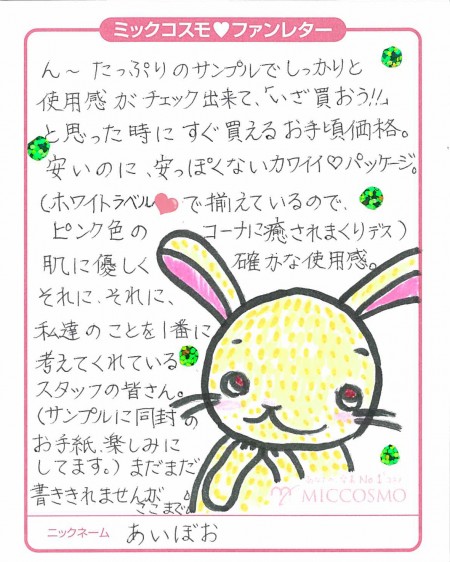 ミックコスモ♥ファンレター
ん〜たっぷりのサンプルでしっかりと
使用感がチェック出来て、「いざ買おう!!」
と思った時にすぐ買えるお手頃価格。
安いのに、安っぽくないカワイイ♡パッケージ。
(ホワイトラベル♥で揃えているので、
ピンク色のコーナに癒されまくりデス)
肌に優しく確かな使用感。
それに、それに、
私達のことを1番に
考えてくれている
スタッフの皆さん。
(サンプルに同封の
お手紙、楽しみに
してます。)まだまだ
書ききれませんが
ここまで
No.1
MICCOSMO
ニックネーム あいぼお